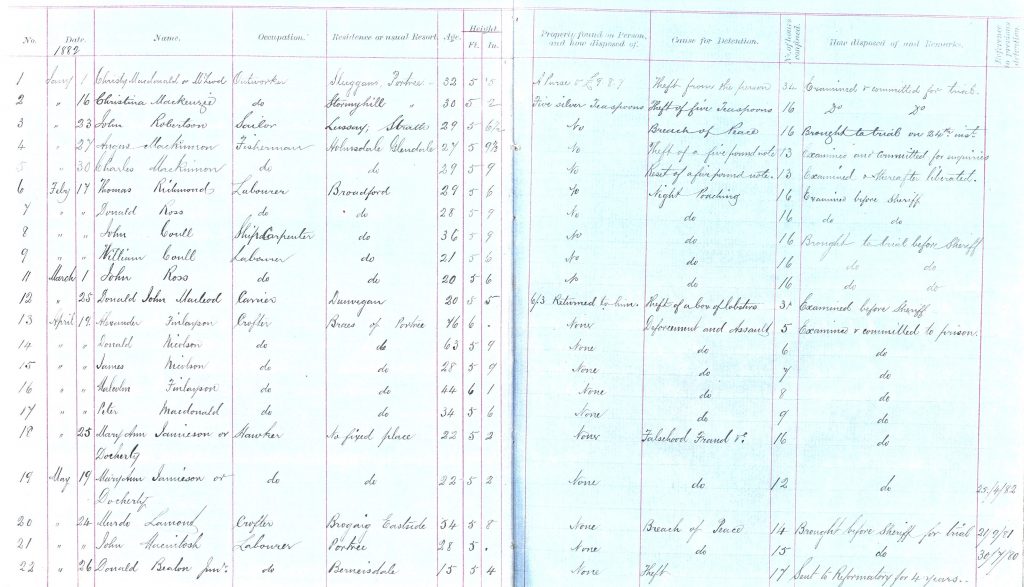 No. Date. Name. Occupation. Residence or usual Resort. Age. Height Ft. In. Property found on Person, and how disposed of. Cause for Detention. No. of hours confined. How disposed of and Remarks. Reference to previous detention.
1882
1 Jany 1 Christy Macdonald or McLeod Outworker Sluggans, Portree 32 5 A Purse & £9 8 9 Theft from the person 34 Examined & committed for trial.
2 " 16 Christina Mackenzie do Stormyhill " 30 5 2 Five silver Teaspoons Theft of five Teaspoons 16 Do Do
3 " 23 John Robertson Sailor Lussay, Strath 29 5 6½ No Breach of Peace 16 Brought to trial on 24th inst.
4 " 27 Angus Mackinnon Fisherman Holmsdale Glendale 27 5 9½ No Theft of a five pound note 13 Examined and committed for inquiries
5 " 30 Charles Mackinnon do do 29 5 9 No Reset of a five pound note. 13 Examined & thereafter liberated.
6 Feby 17 Thomas Richmond Labourer Broadford 29 5 6 No Night Poaching 16 Examined before Sheriff
7 " " Donald Ross do do 28 5 9 No do 16 do do
8 " " John Coull Ship Carpenter do 36 5 9 No do 16 Brought to trial before Sheriff
9 " " William Coull Labourer do 21 5 6 No do 16 do do
11 March 1 John Ross do do 20 5 6 No do 16 do do
12 " 25 Donald John Macleod Carrier Dunvegan 20 5 5 6/3 Returned to him. Theft of a box of lobsters Examined before Sheriff
13 April 19 Alexander Finlayson Crofter Braes of Portree 46 6 . None Deforcement and Assault 5 Examined & committed to prison.
14 " " Donald Nicolson do do 63 5 9 None do 6 do
15 " " James Nicolson do do 28 5 9 None do 7 do
16 " " Malcolm Finlayson do do 44 6 1 None do 8 do
17 " " Peter Macdonald do do 34 5 6 None do 9 do
18 " 25 Mary Ann Jamieson or Hawker No fixed place 22 5 2 None Falsehood Fraud &c. 16 do
Docherty
19 May 19 Mary Ann Jamieson or do do 22 5 2 None do 12 do 25/4/82
Docherty
20 " 24 Murdo Lamont Crofter Brogaig Eastside 34 5 8 None Breach of Peace 14 Brought before Sheriff for trial 21/9/81
21 " " John Macintosh Labourer Portree 28 5 . None do 15 do 30/7/80
22 " 26 Donald Beaton junr. do Berneisdale 15 5 4 None Theft 17 Sent to Reformatory for 4 years.